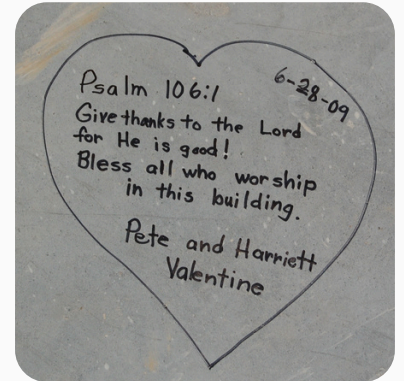 Psalm 106:1
6-28-09
Give thanks to the Lord
for He is good!
Bless all who worship
in this building.
Pete and Harriett
Valentine